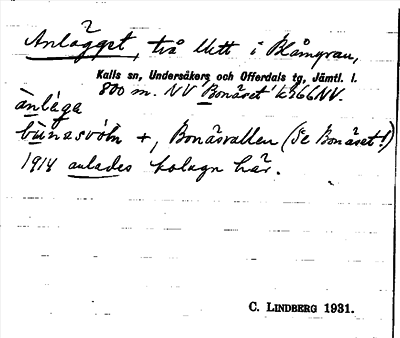 Anlägget, två slått i Blåmyran,
Kalls sn, Undersåkers och Offerdals tg, Jämtl. l.
800 m. NV Bonäset k366NV.
ànlà̱ga
bù̱nasvòln +, Bonäsvallen (se Bonäset!)
1914 aulades kolagn här.
C. LINDBERG 1931.